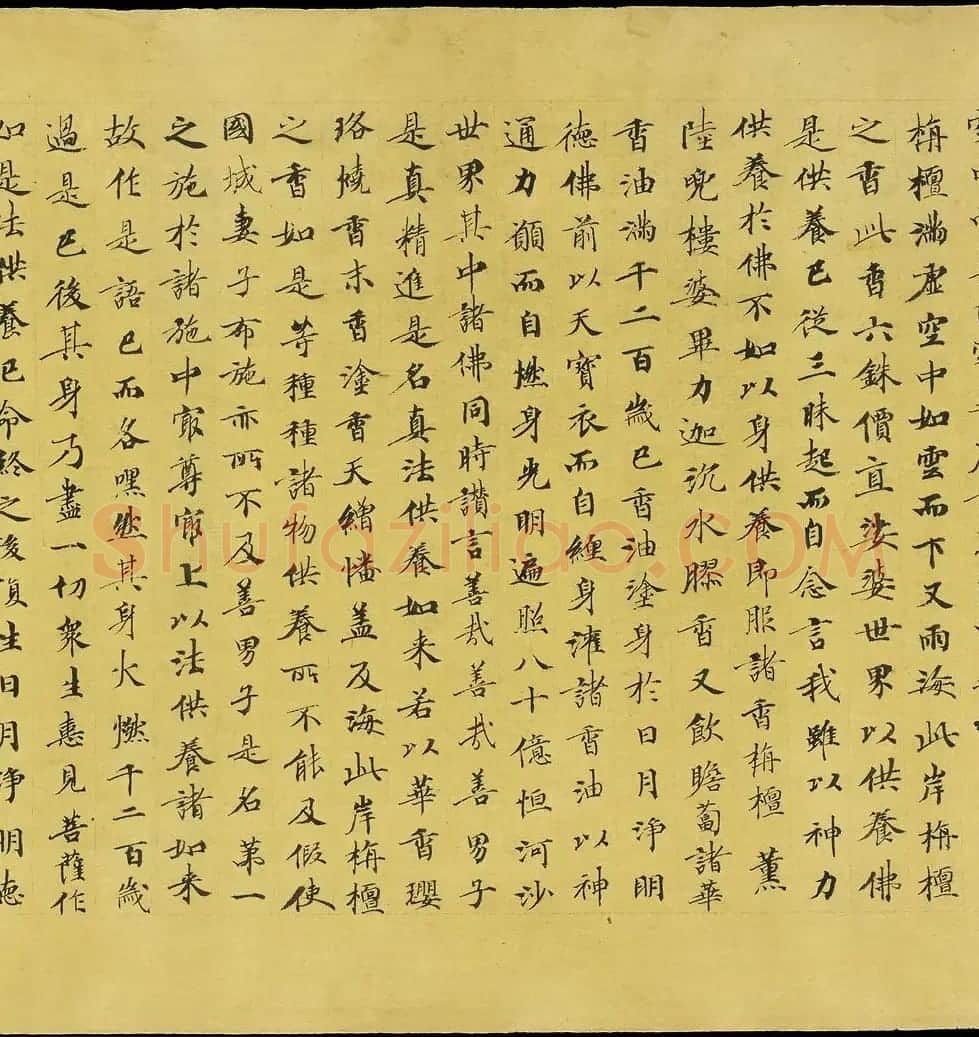 栴檀滿虛空中如雲而下又雨海此岸栴檀
之香此香六銖價直娑婆世界以供養佛
是供養已從三昧起而自念言我雖以神力
供養於佛不如以身供養即服諸香栴檀薰
陸兜樓婆畢力迦沉水膠香又飲瞻蔔諸華
香油滿千二百歲已香油塗身於日月淨明
德佛前以天寶衣而自纏身灌諸香油以神
通力願而自燃身光明遍照八十億恒河沙
世界其中諸佛同時讃言善哉善哉善男子
是真精進是名真法供養如来若以華香瓔
珞燒香末香塗香天繒幡盖及海此岸栴檀
之香如是等種種諸物供養所不能及假使
國城妻子布施亦所不及善男子是名第一
之施於諸施中冣尊冣上以法供養諸如来
故作是語已而各嘿然其身火燃千二百歲
過是已後其身乃盡一切衆生憙見菩薩作
如是法供養已命終之後復生日月淨明德
Shufaziliao.COM